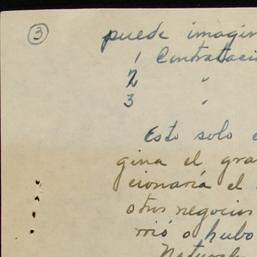 3
puede imagin
1 Contrataci
2 "
3 "
Esto solo e
gina el gra
cionaría el
otros negocios
rrió o hubo
Natural